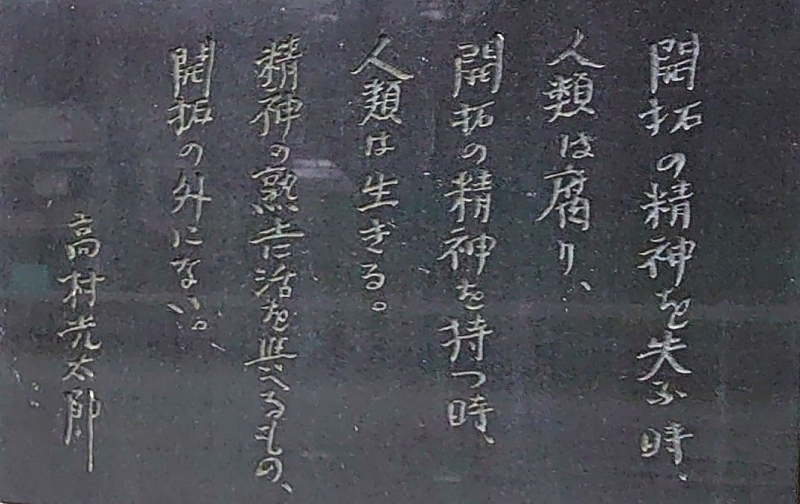 開拓の精神を失ふ時、
人類は腐り、
開拓の精神を持つ時、
人類は生きる。
精神の熟土に活を與へるもの、
開拓の外にない。
高村光太郎